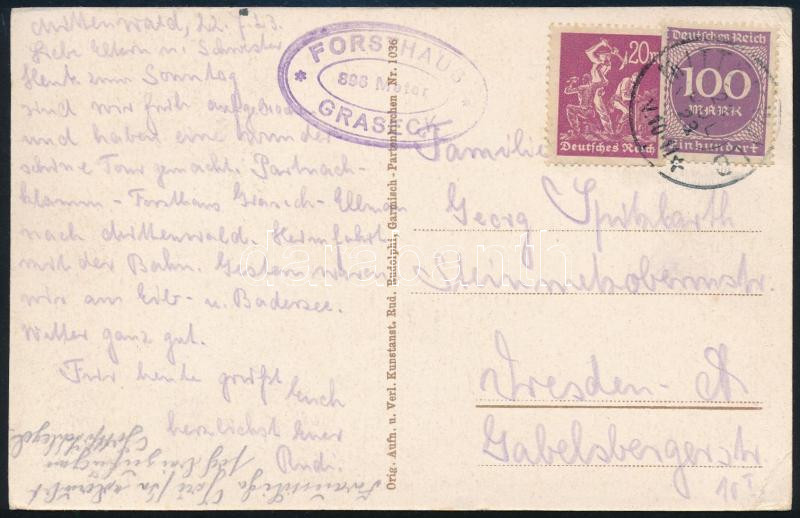 Mittenwald, 22. 7. 23.
Liebe Eltern u. Schwester
Heute zum Sonntag
sind wir früh aufgebrochen
und haben eine wunder
schöne Tour gemacht. Partnach-
klamm - Forsthaus Graseck - Ellmau
nach Mittenwald. Heimfahrt
mit der Bahn. Gestern waren
wir am Eib- u. Badersee.
Wetter ganz gut.
Für heute grüßt Euch
herzlichst Euer
Rudi.
FORSTHAUS
896 Meter
GRASECK
Orig. Aufn. u. Verl. Kunstanst. Rud. Rudolphi, Garmisch-Partenkirchen Nr. 1036
20 M
Deutsches Reich
Deutsches Reich
100
MARK
Einhundert
MITT
Familie
Georg Spitzbarth
Dresden - A
Gabelsbergerstr.
10 I
darabanth